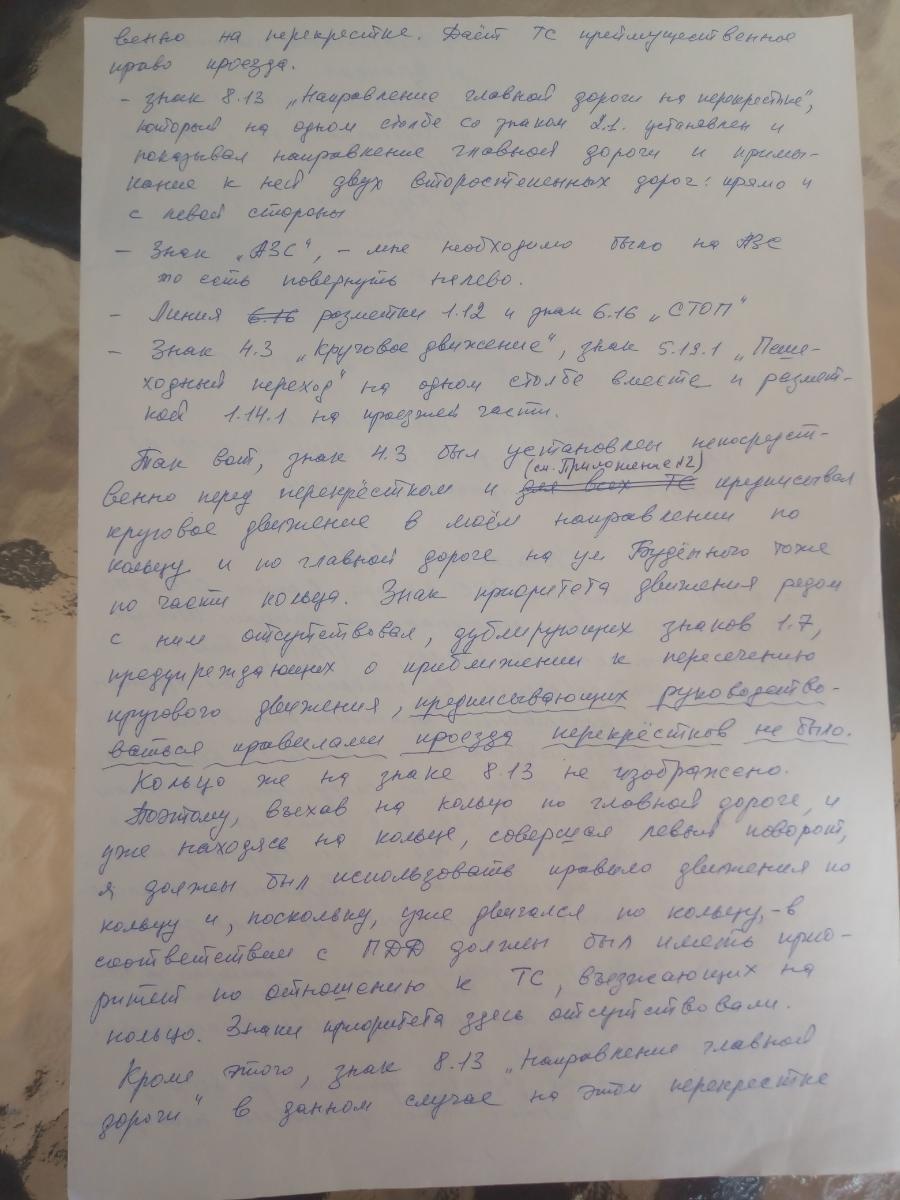 венно на перекрестке. Даёт ТС преимущественное
право проезда.
– знак 8.13 „Направление главной дороги на перекрестке",
который на одном столбе со знаком 2.1. установлен и
показывал направление главной дороги и примы-
кание к ней двух второстепенных дорог: прямо и
с левой стороны
– Знак „АЗС", – мне необходимо было на АЗС
то есть повернуть налево.
– Линия 6.16 разметки 1.12 и знак 6.16 „СТОП"
– Знак 4.3 „Круговое движение", знак 5.19.1 „Пеше-
ходный переход" на одном столбе вместе и размет-
кой 1.14.1 на проезжей части.
Так вот, знак 4.3 был установлен непосредст-
(см. Приложение №2)
венно перед перекрёстком и для всех ТС предписывал
круговое движение в моём направлении по
кольцу и по главной дороге на ул Будённого тоже
по части кольца. Знак приоритета движения рядом
с ним отсутствовал, дублирующих знаков 1.7,
предупреждающих о приближении к пересечению
кругового движения, предписывающих руководство-
ваться правилами проезда перекрёстков не было.
Кольцо же на знаке 8.13 не изображено.
Поэтому, въехав на кольцо по главной дороге, и
уже находясь на кольце, совершая левый поворот,
я должен был использовать правило движения по
кольцу и, поскольку, уже двигался по кольцу, – в
соответствии с ПДД должен был иметь прио-
ритет по отношению к ТС, въезжающих на
кольцо. Знаки приоритета здесь отсутствовали.
Кроме этого, знак 8.13 „Направление главной
дороги" в данном случае на этом перекрестке